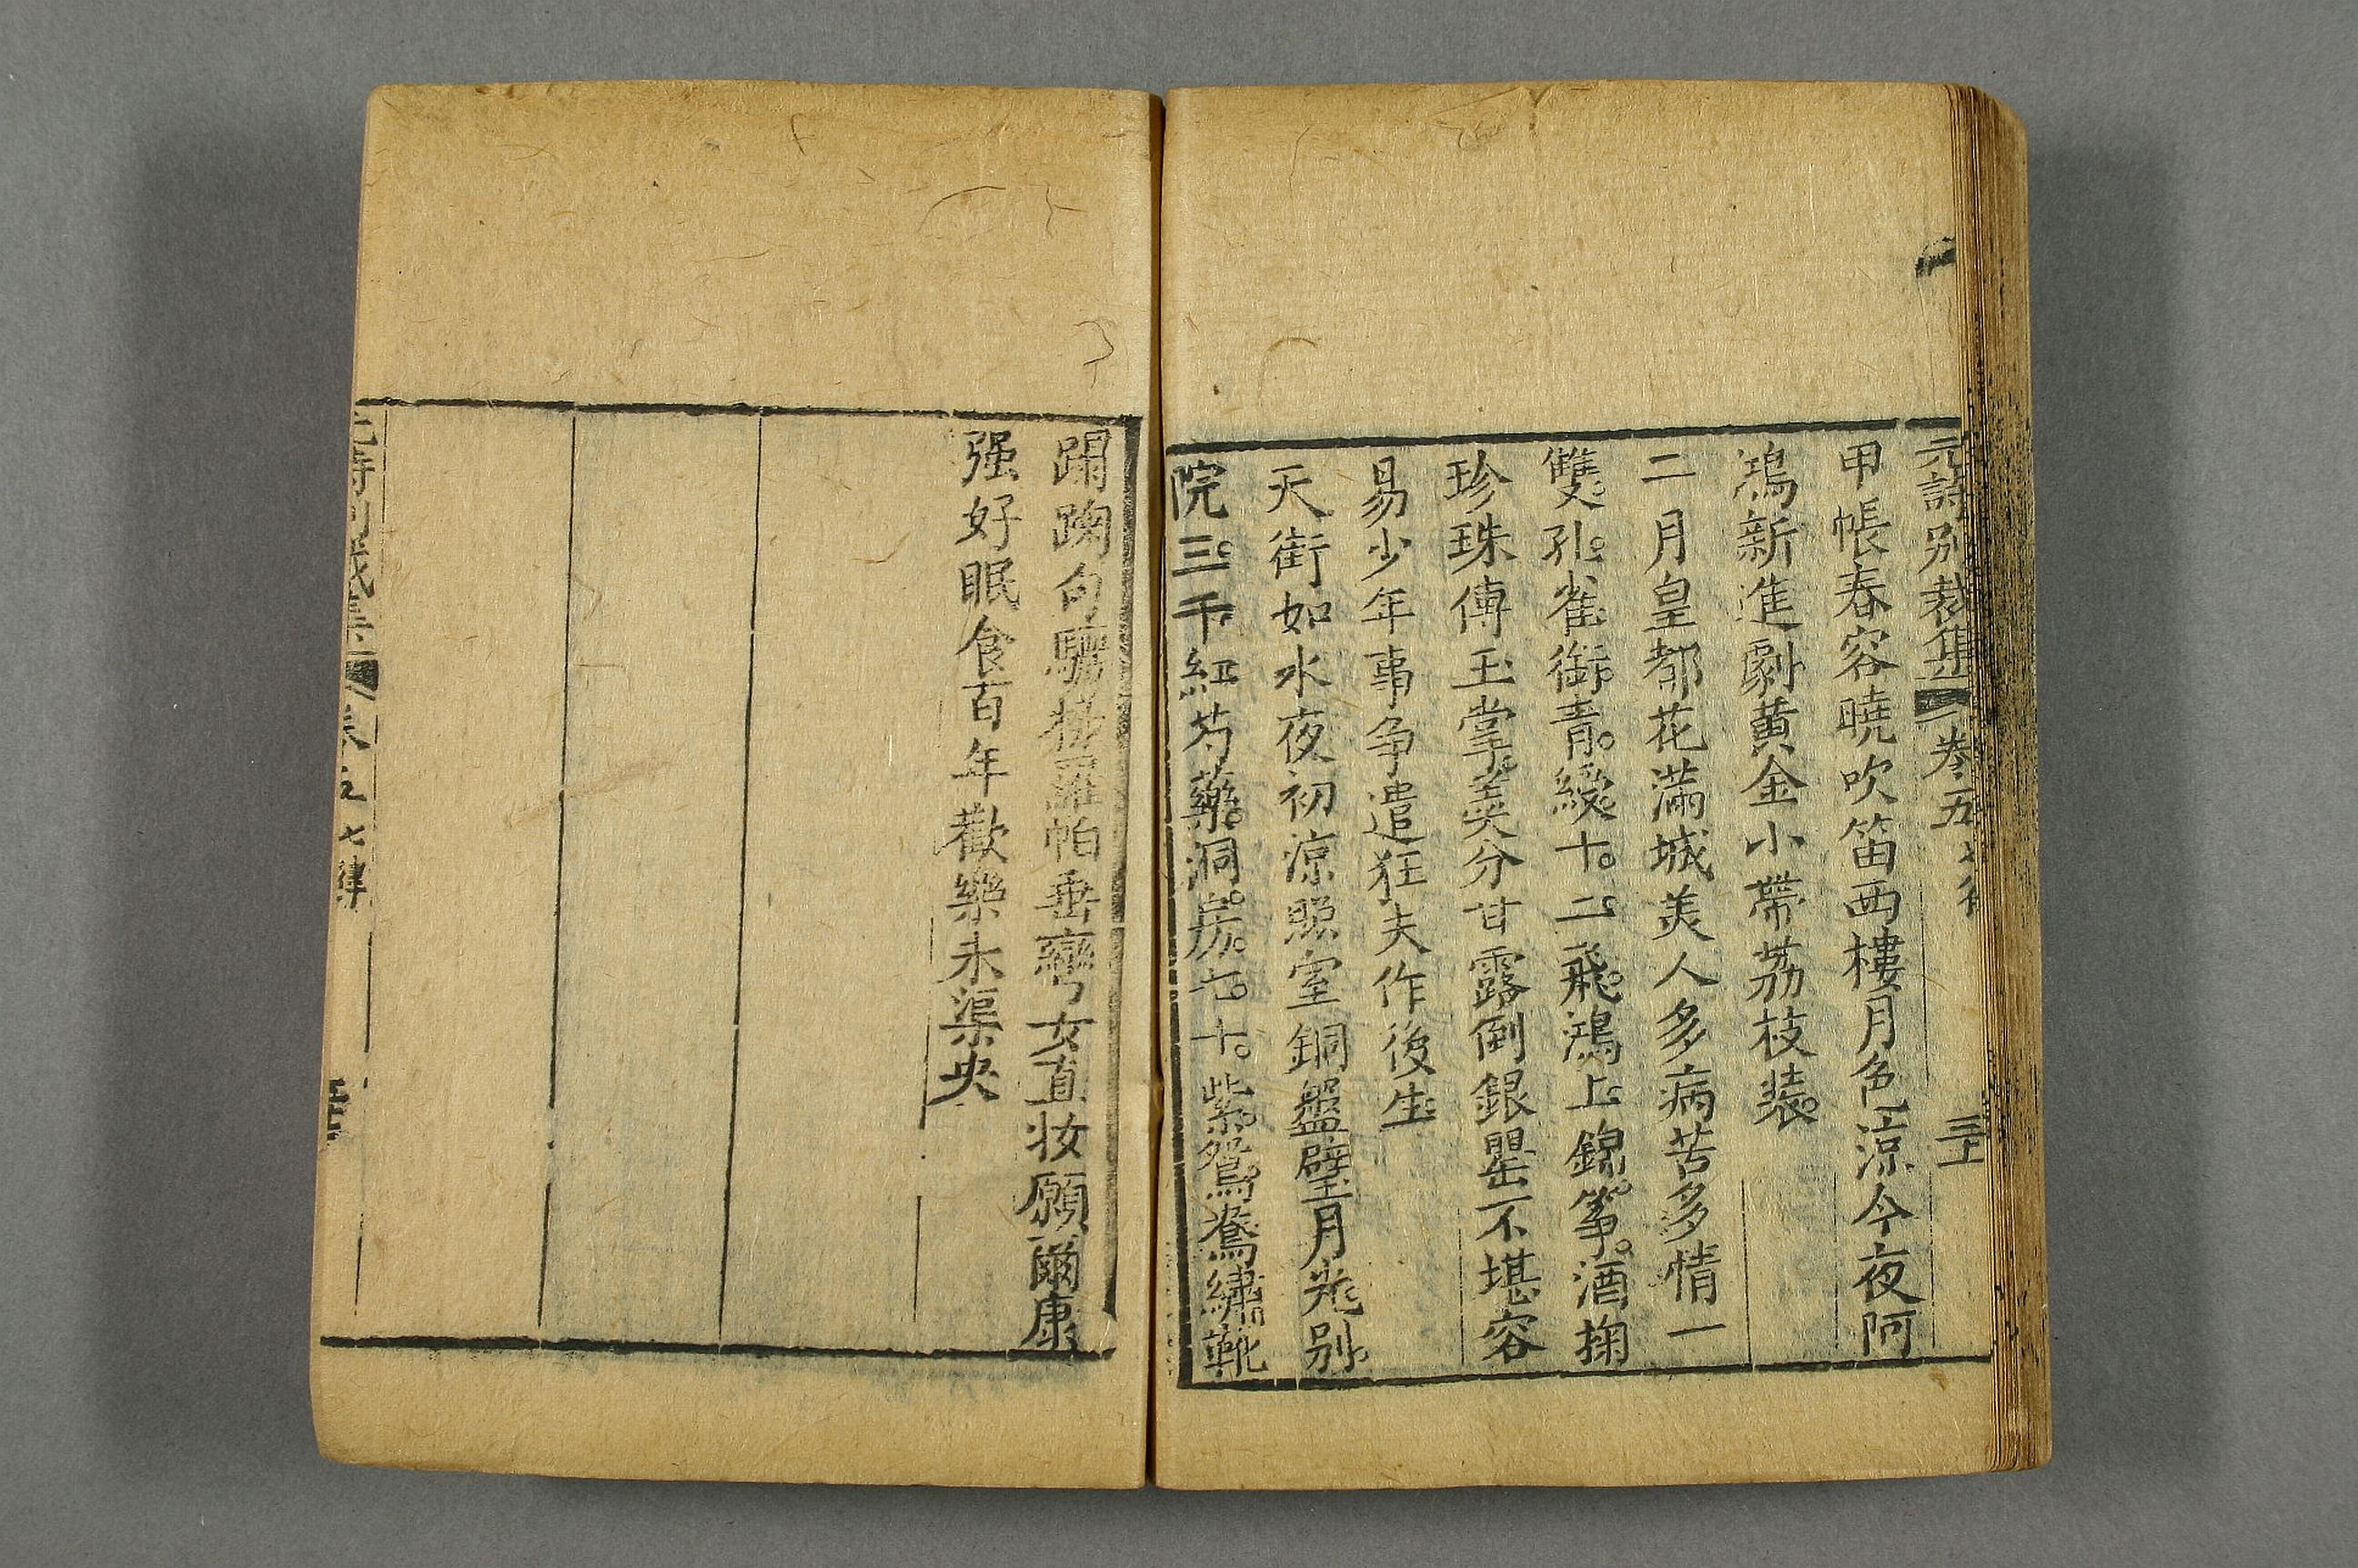 元詩別裁集 卷五 七律 三十
甲帳春容曉吹笛西樓月色涼今夜阿
鴻新進劇黃金小帶荔枝裝
二月皇都花滿城美人多病苦多情一
雙孔雀銜青綬十二飛鴻上錦箏酒掬
珍珠傳玉掌羹分甘露倒銀罌不堪容
易少年事爭遣狂夫作後生
天街如水夜初涼照室銅盤璧月光別
院三千紅芍藥洞房七十紫鴛鴦繡靴
蹋踘句驪樣羅帕垂彎女直妝願爾康
强好眠食百年歡樂未渠央
元詩別裁集 卷五 七律